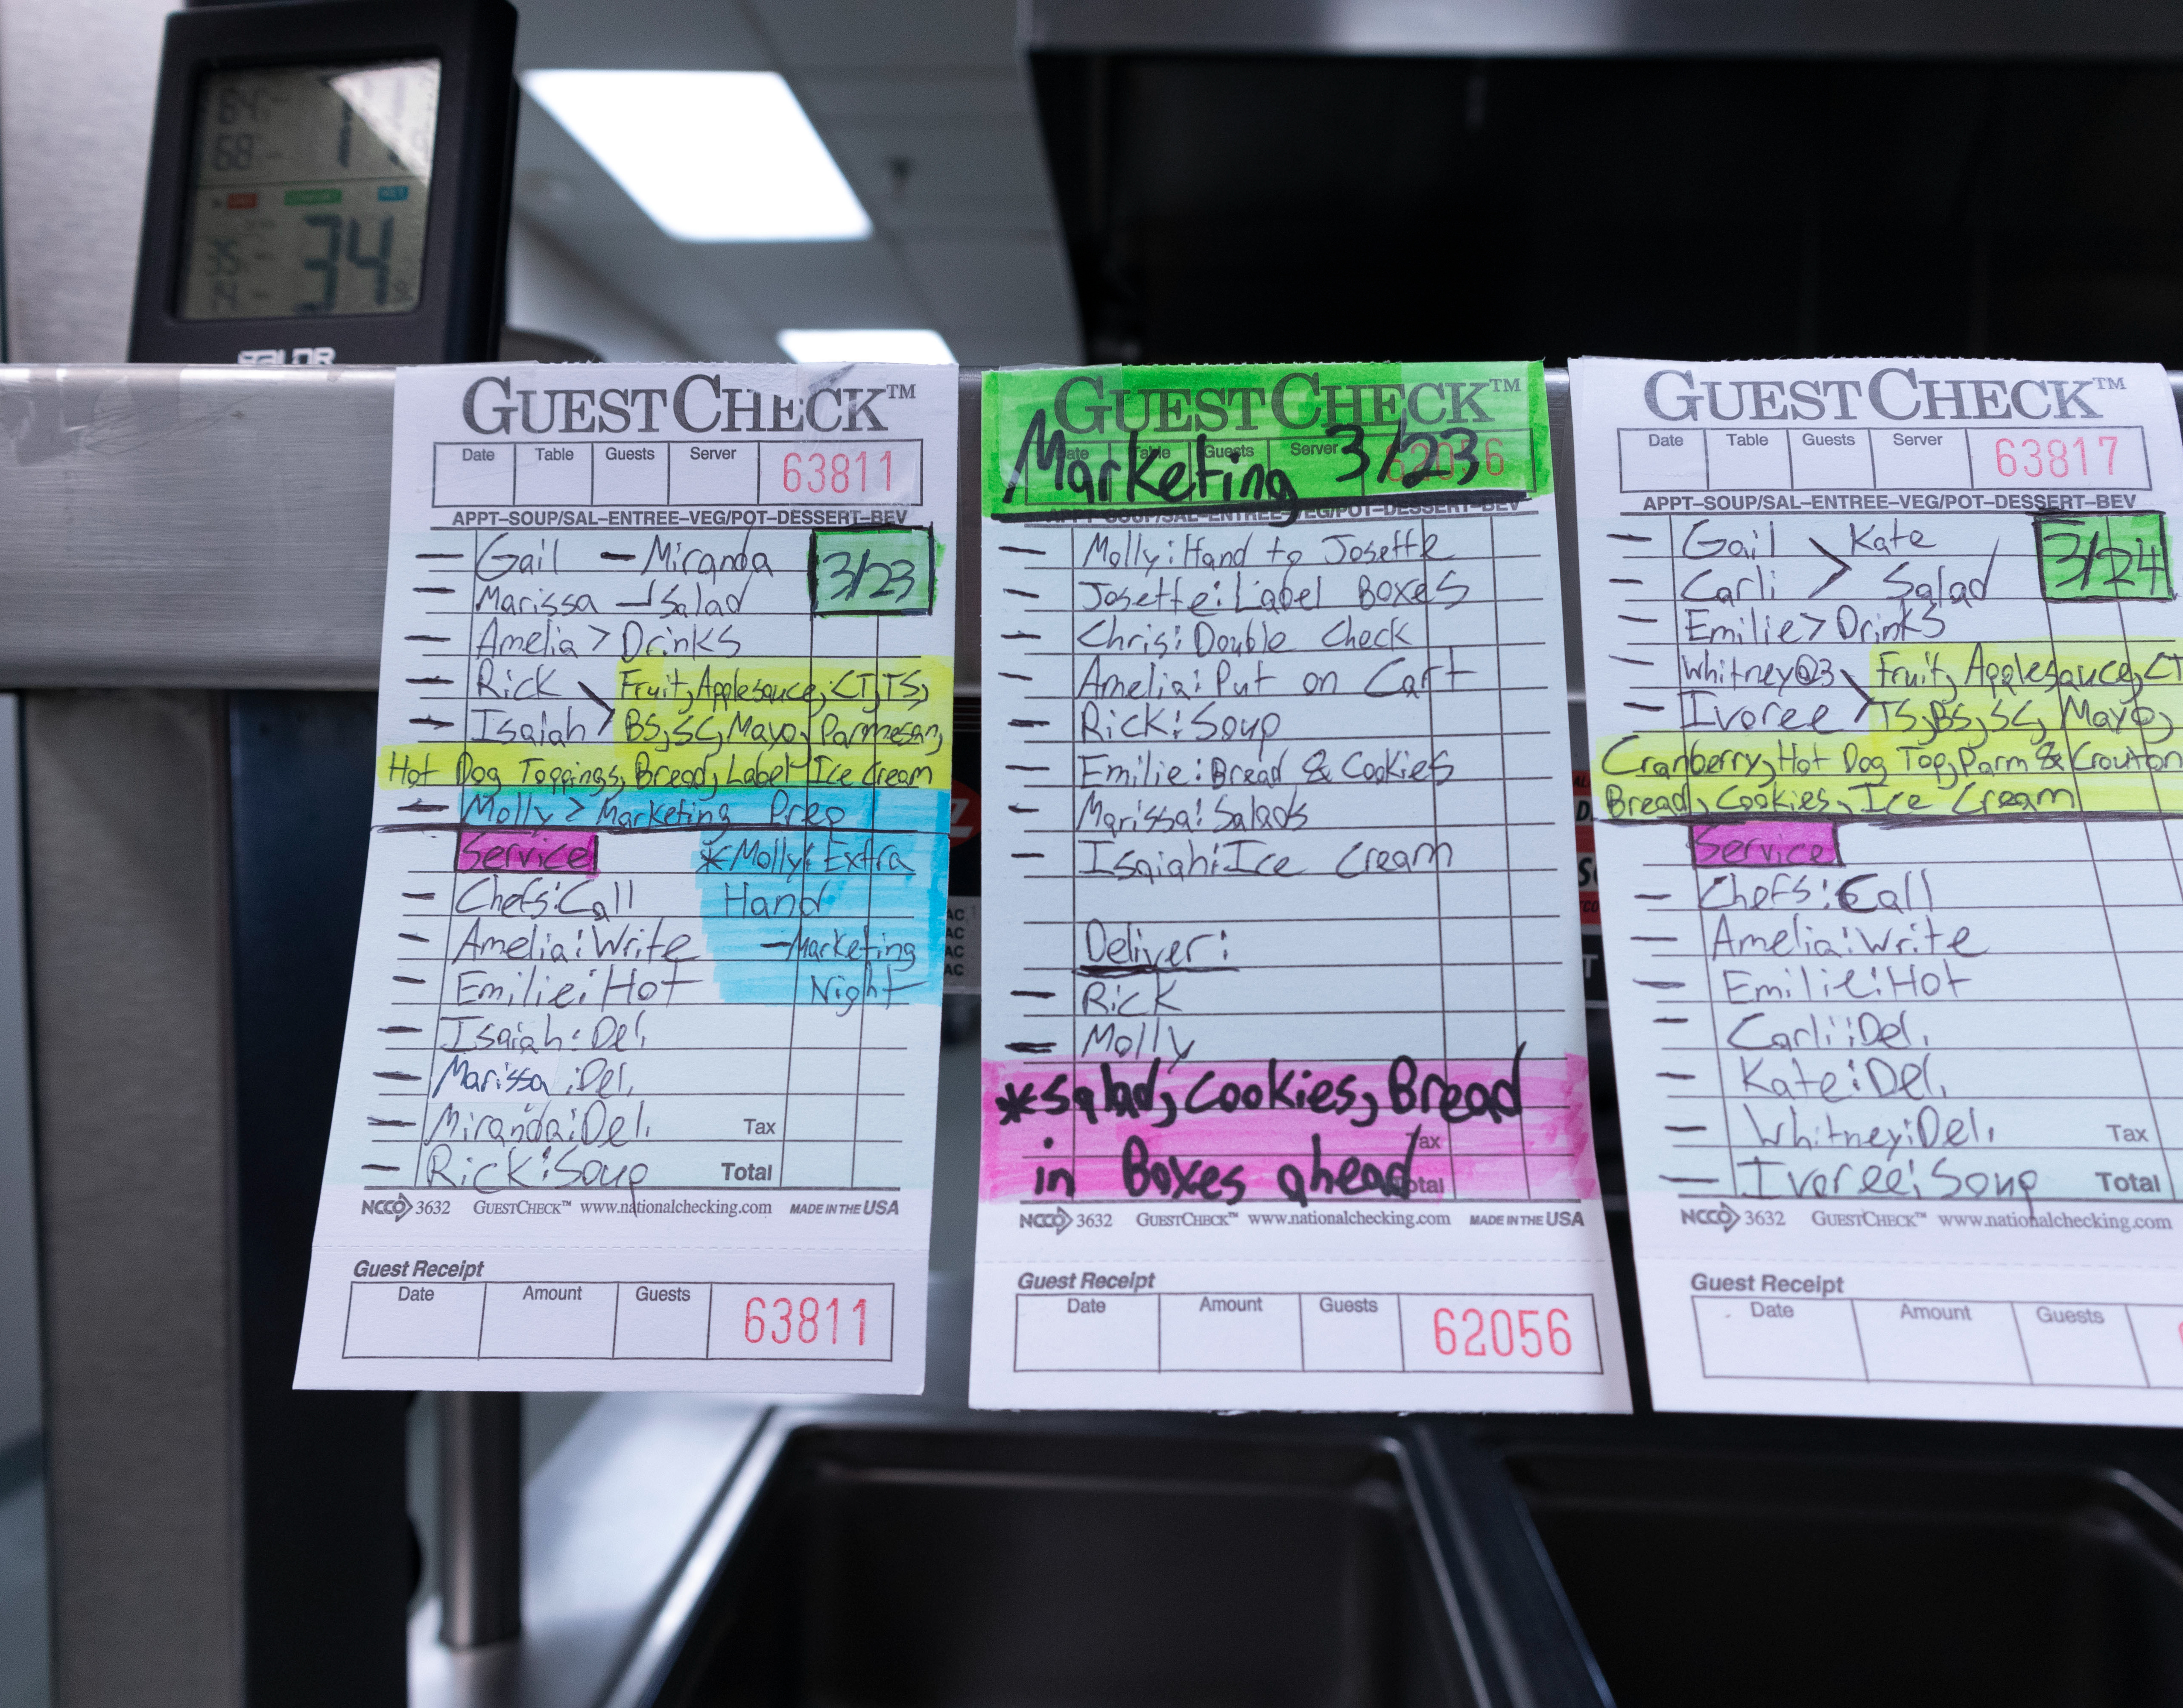 34
GUESTCHECK™
Date Table Guests Server 63811
APPT–SOUP/SAL–ENTREE–VEG/POT–DESSERT–BEV
Gail — Miranda 3/23
Marissa Salad
Amelia > Drinks
Rick Fruit, Applesauce, CT, TS,
Isaiah > BS, SC, Mayo, Parmesan,
Hot Dog Toppings, Bread, Label Ice Cream
Molly > Marketing Prep
Service *Molly: Extra
Chefs: Call Hand
Amelia: Write —Marketing
Emilie: Hot Night
Isaiah: Del.
Marissa: Del.
Miranda: Del. Tax
Rick: Soup Total
NCCO 3632 GUESTCHECK™ www.nationalchecking.com MADE IN THE USA
Guest Receipt
Date Amount Guests 63811
GUESTCHECK™
Date Table Guests Server 62056
Marketing 3/23
APPT–SOUP/SAL–ENTREE–VEG/POT–DESSERT–BEV
Molly: Hand to Josette
Josette: Label Boxes
Chris: Double Check
Amelia: Put on Cart
Rick: Soup
Emilie: Bread & Cookies
Marissa: Salads
Isaiah: Ice Cream
Deliver:
Rick
Molly
*Salad, Cookies, Bread
in Boxes ahead
Tax
Total
NCCO 3632 GUESTCHECK™ www.nationalchecking.com MADE IN THE USA
Guest Receipt
Date Amount Guests 62056
GUESTCHECK™
Date Table Guests Server 63817
APPT–SOUP/SAL–ENTREE–VEG/POT–DESSERT–BEV
Gail > Kate 3/24
Carli > Salad
Emilie > Drinks
Whitney@3 Fruit, Applesauce, CT
Ivoree > TS, BS, SC, Mayo,
Cranberry, Hot Dog Top, Parm & Crouton
Bread, Cookies, Ice Cream
Service
Chefs: Call
Amelia: Write
Emilie: Hot
Carli: Del.
Kate: Del.
Whitney: Del. Tax
Ivoree: Soup Total
NCCO 3632 GUESTCHECK™ www.nationalchecking.com
Guest Receipt
Date Amount Guests